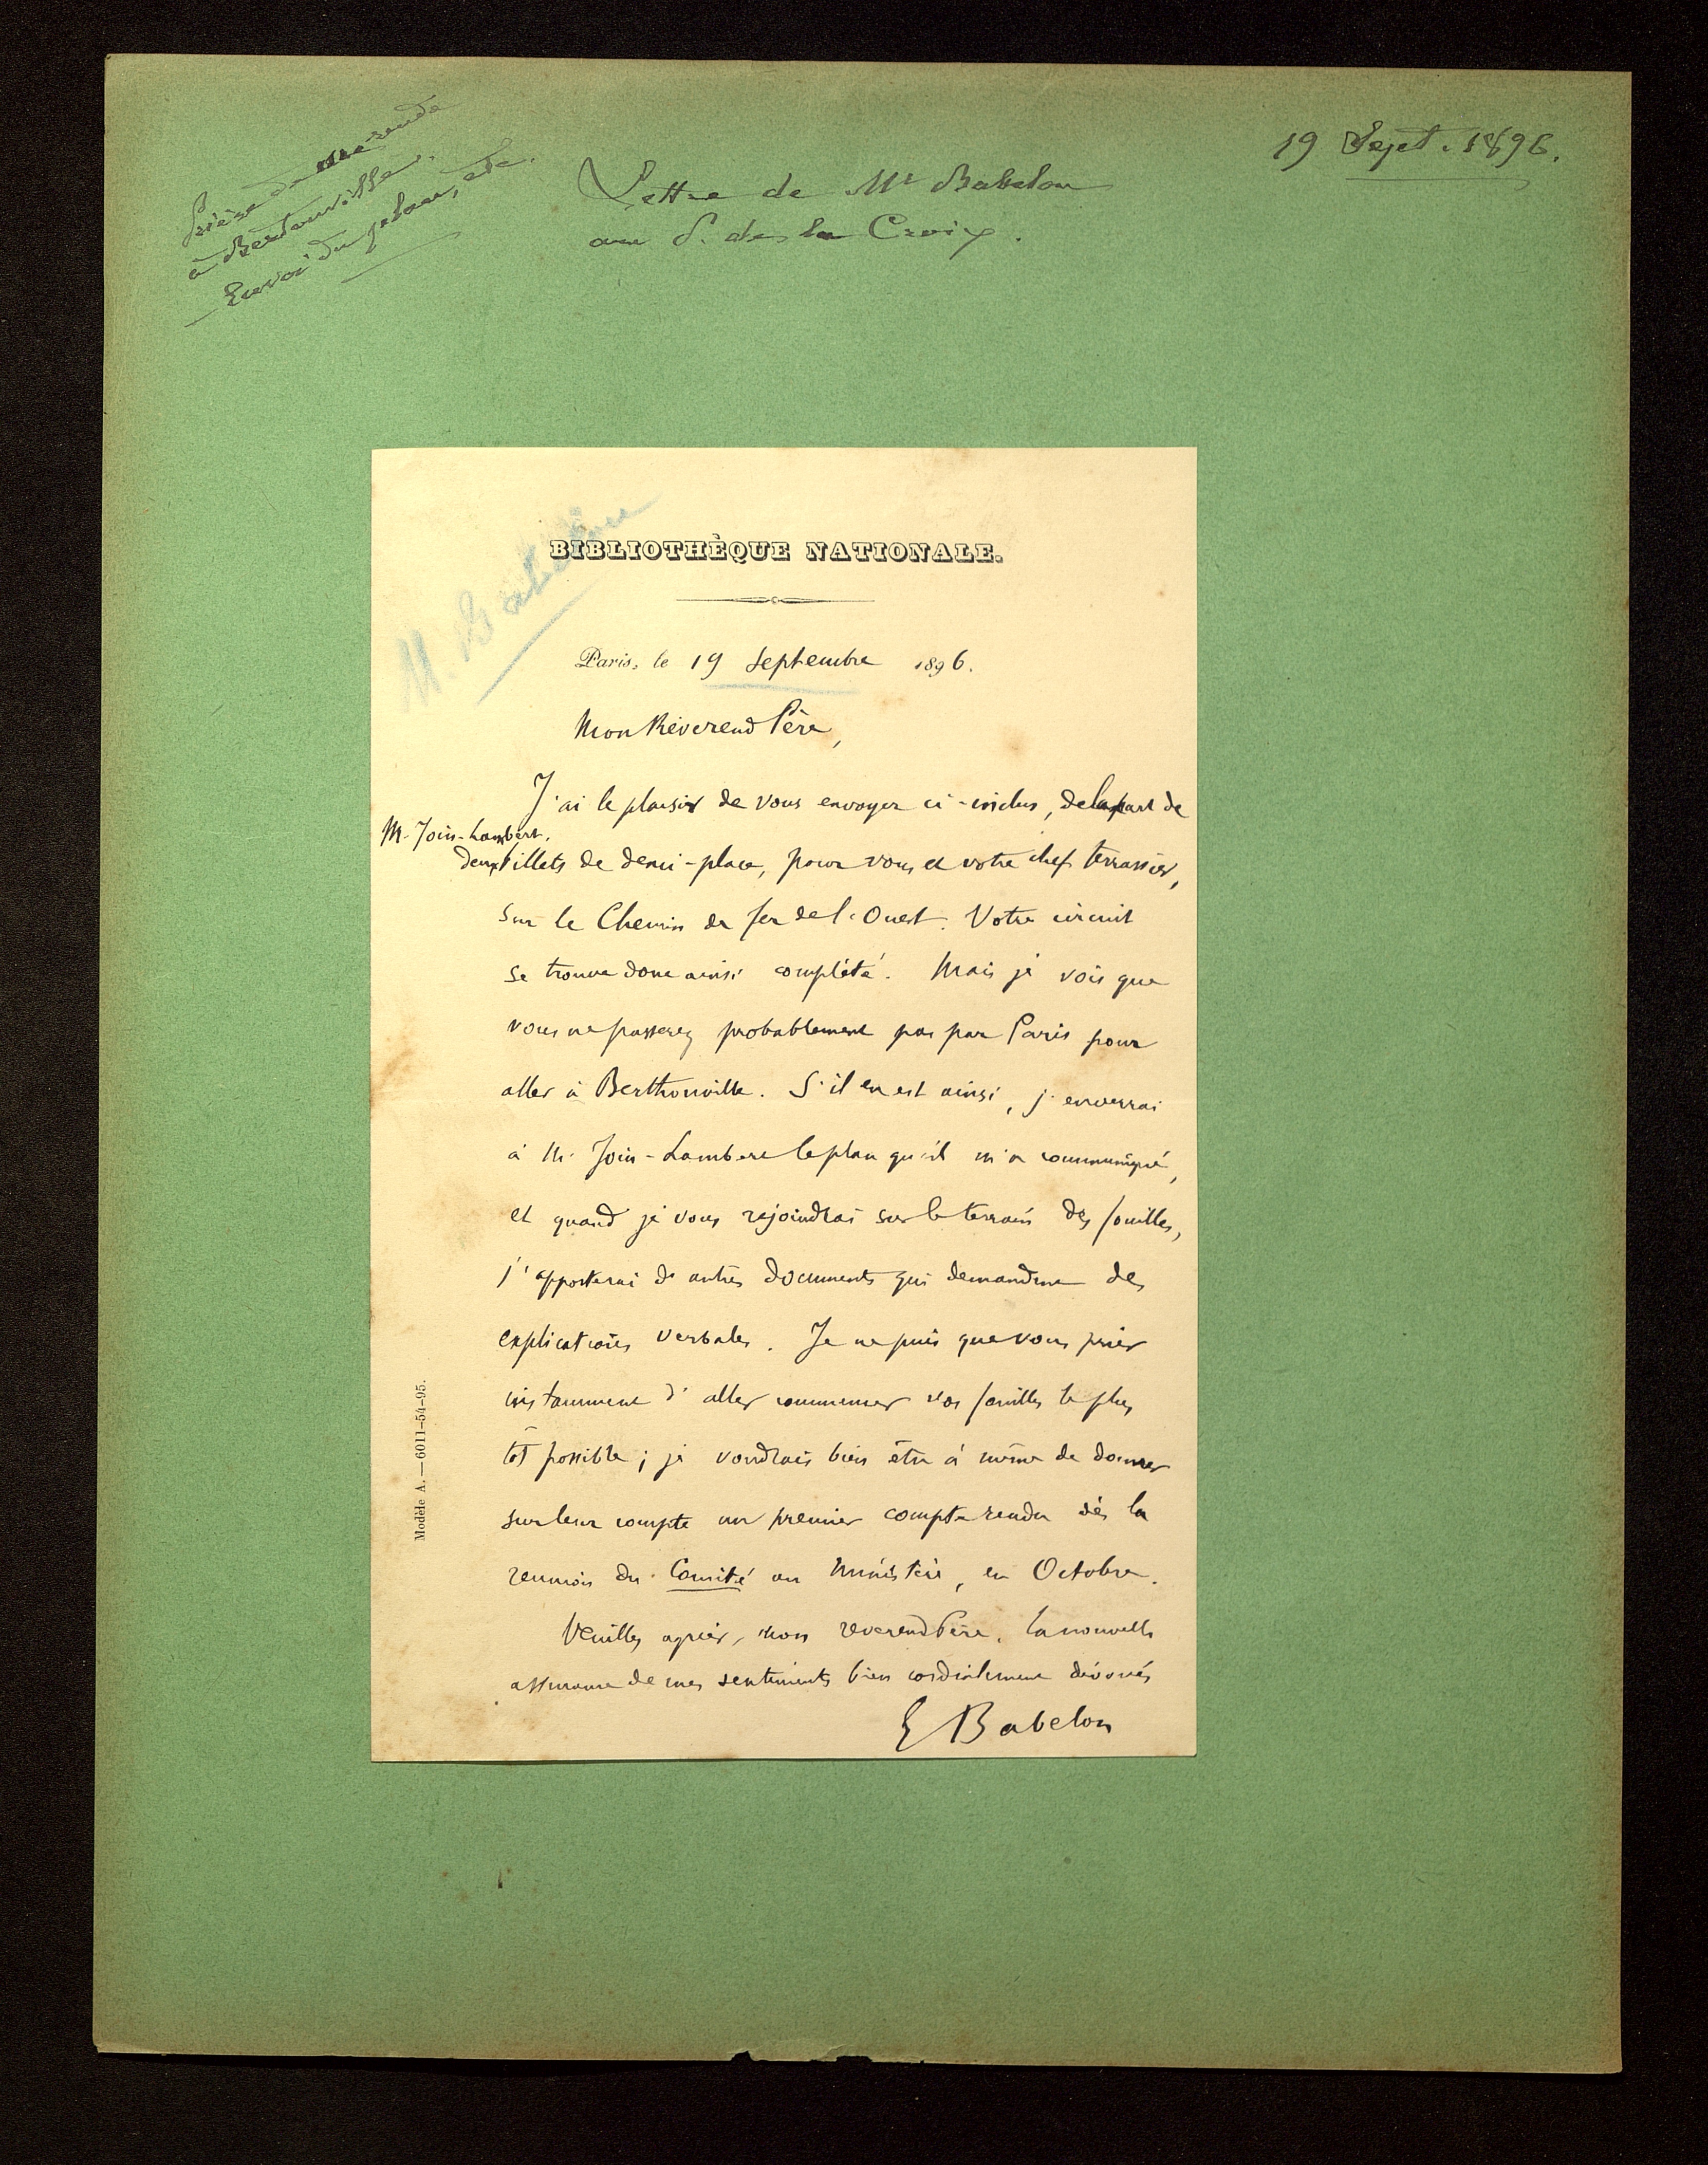 Prière de me rendre
à Berthouville.
Envoi du plan, etc.
Lettre de Mr Babelon
au P. de la Croix.
19 Sept. 1896.
M. Babelon
BIBLIOTHÈQUE NATIONALE.
Paris, le 19 Septembre 1896.
Mon Révérend Père,
J'ai le plaisir de vous envoyer ci-inclus, de la part de
M. Join-Lambert,
deux billets de demi-place, pour vous et votre chef terrassier,
sur le Chemin de fer de l'Ouest. Votre circuit
se trouve donc ainsi complété. Mais je vois que
vous ne passerez probablement pas par Paris pour
aller à Berthouville. S'il en est ainsi, j'enverrai
à M. Join-Lambert le plan qu'il m'a communiqué,
et quand je vous rejoindrai sur le terrain des fouilles,
j'apporterai d'autres documents qui demandent des
explications verbales. Je ne puis que vous prier
instamment d'aller commencer vos fouilles le plus
tôt possible; je voudrais bien être à même de donner
sur leur compte un premier compte rendu dès la
reunion du Comité au Ministère, en Octobre.
Veuillez agréer, mon reverend Père, la nouvelle
assurance de mes sentiments bien cordialement dévoués
E Babelon
Modèle A. — 6011-54-95.